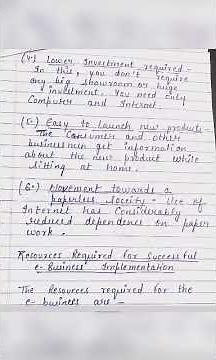 (4.) Lower Investment required -
In this, you don't require
any big showroom or huge
investment. You need only
Computer and Internet.
(5.) Easy to launch new products -
The Consumer and other
businessmen get information
about the new product while
sitting at home.
(6.) Movement towards a
paperless society - Use of
Internet has Considerably
reduced dependence on paper
work.
Resources Required for Successful
e-Business Implementation
The Resources required for the
e-business are -